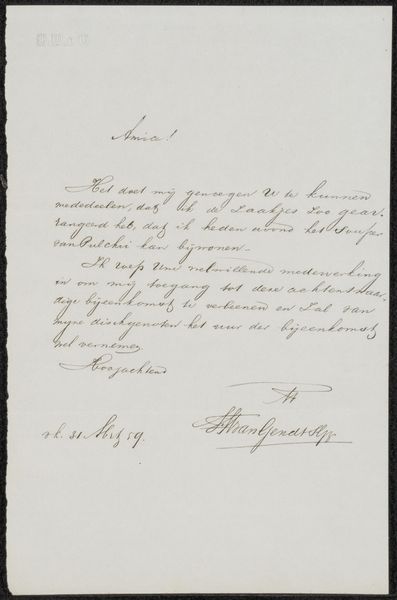 Amice!
Het doet mij genoegen U te kunnen
mededeelen, dat ik de zaakjes zoo gear-
rangeerd heb, dat ik heden avond het Souper
van Pulchri kan bijwonen.
Ik roep Uwe welwillende medewerking
in om mij toegang tot deze achtenswaar-
dige bijeenkomst te verleenen en zal van
mijne dischgenoten het uur der bijeenkomst
wel vernemen.
Hoogachtend
tt
van Gendt
31 Mrt 59.